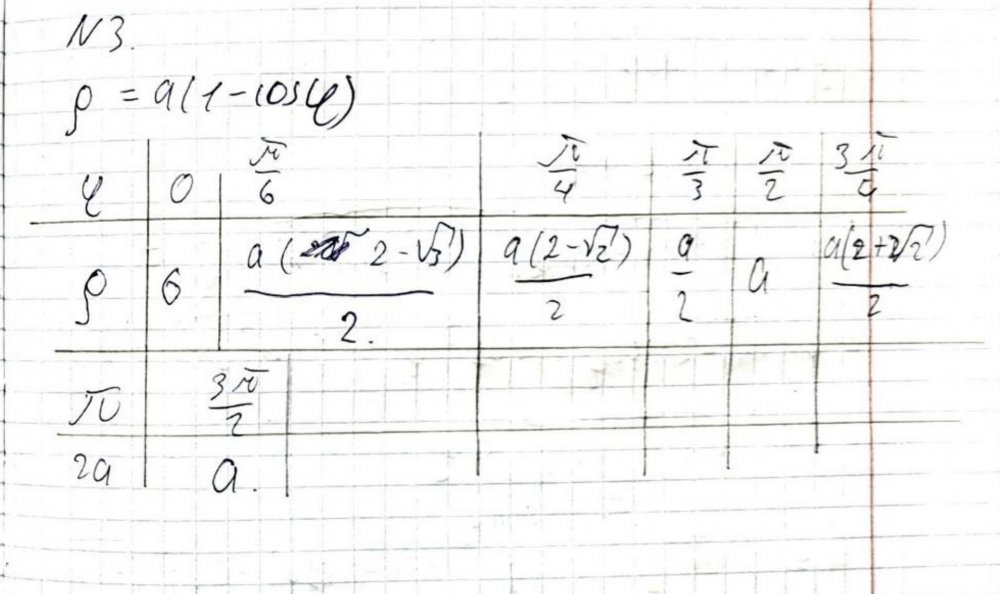 N3.
ρ = a(1-cosφ)
φ 0 π/6 π/4 π/3 π/2 3π/4
ρ 6 a(2-√3)/2. a(2-√2)/2 a/2 a a(2+√2)/2
π 3π/2
2a a.